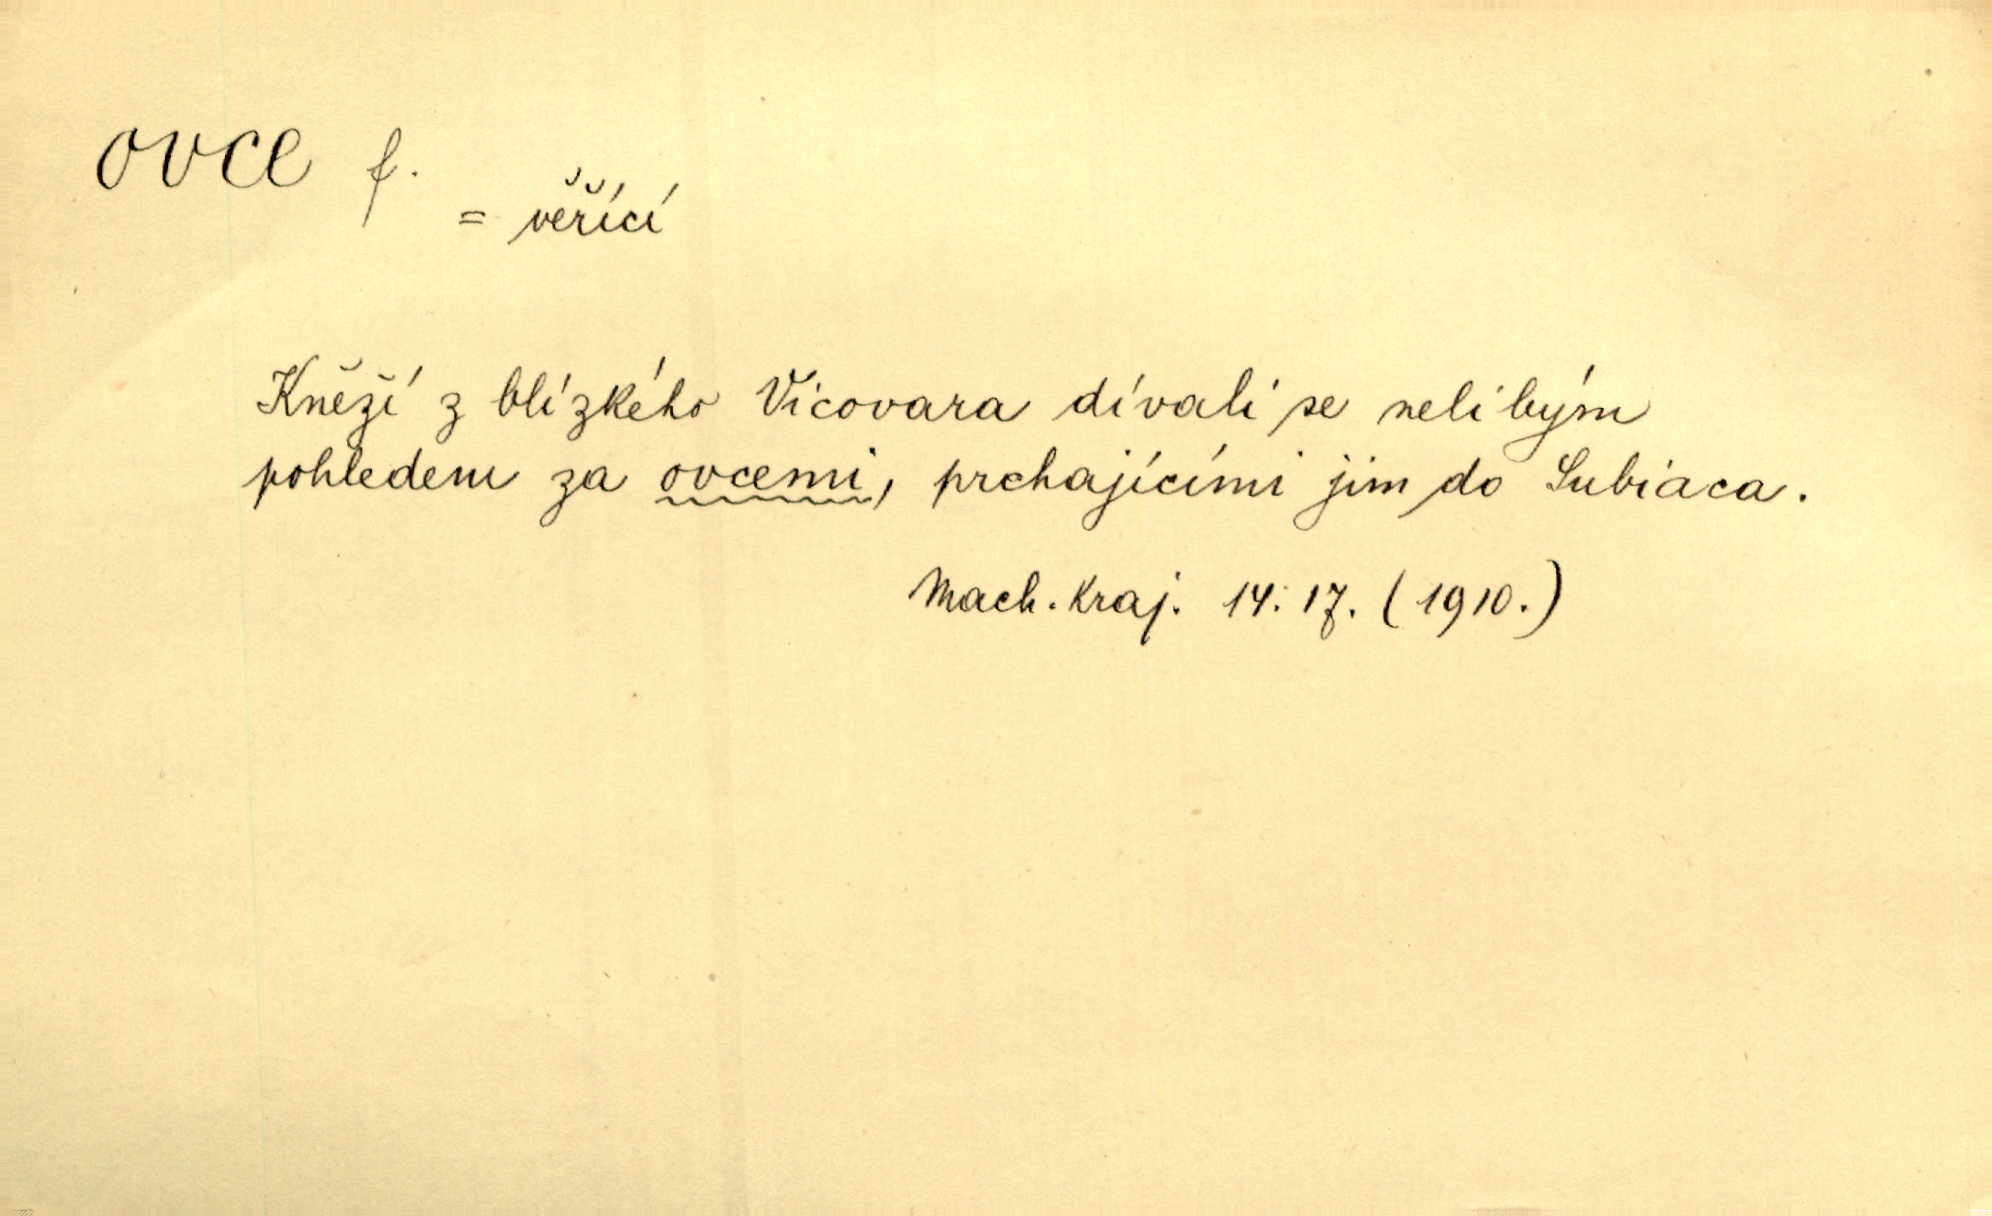 ovce f.
= věřící
Kněží z blízkého Vicovara dívali se nelibým
pohledem za ovcemi, prchajícími jim do Subiaca.
Mach. Kraj. 14. 17. (1910.)